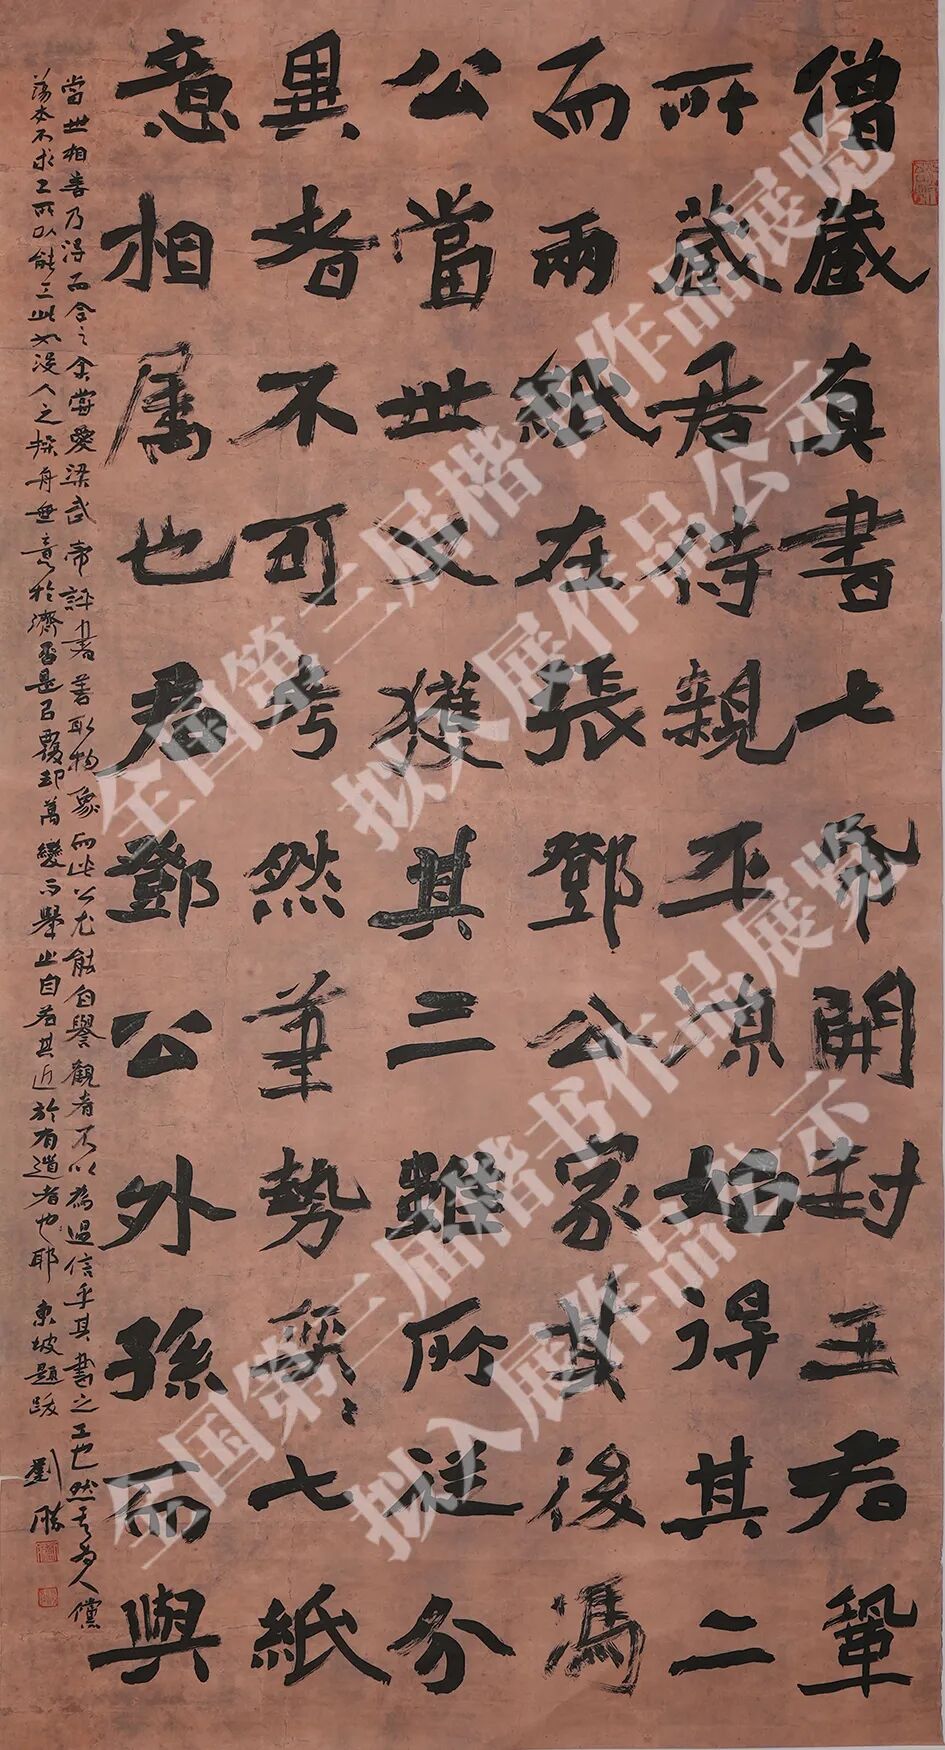 僧藏真書七帋開封王君鞏
所藏君侍親平涼始得其二
而兩紙在張鄧公家其後馮
公當世又獲其三雖所從分
異者不可考然筆勢奕奕七紙
意相屬也君鄧公外孫而與
當世相善乃得而合之余嘗愛梁武帝評書善取物象而此公尤能自譽觀者不以為過信乎其書之工也然其為人儻
蕩本不求工所以能工此如沒人之操舟無意於濟否是以覆却萬變而舉止自若其近於有道者也耶 東坡題跋 劉勝
全国第三届楷书作品展览
拟入展作品公示
全国第三届楷书作品展览
拟入展作品公示